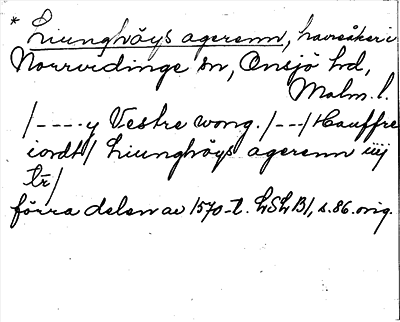 * Liunghöys agerenn, havreåker i
Norrvidinge sn, Onsjö hd,
Malm. l.
/----y Vestre wong. /--/ Hauffre
iordt/ Liunghöys agerenn iiij
tr/
förra delen av 1570-t. LSLB1, s. 86. orig.